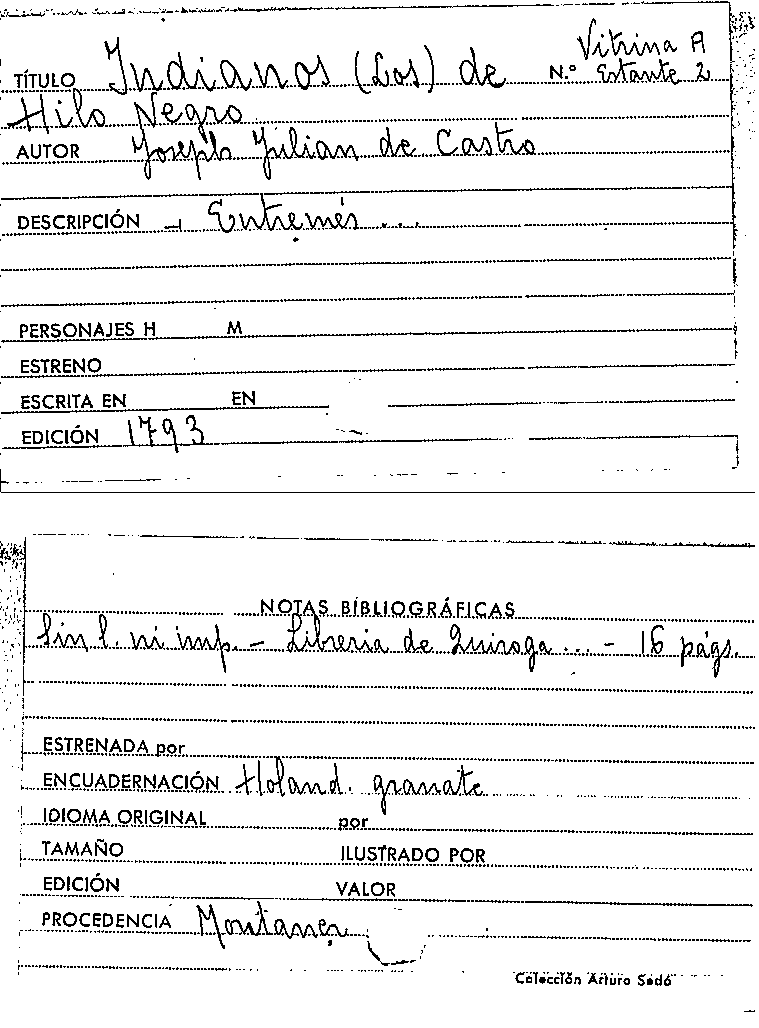 Vitrina A
TÍTULO Indianos (Los) de N.º Estante 2
Hilo Negro
AUTOR Joseph Julian de Castro
DESCRIPCIÓN - Entremés ...
PERSONAJES H M
ESTRENO
ESCRITA EN EN
EDICIÓN 1793
NOTAS BIBLIOGRÁFICAS
Sin l. ni imp. - Libreria de Quiroga ... - 16 págs.
ESTRENADA por
ENCUADERNACIÓN Holand. granate
IDIOMA ORIGINAL por
TAMAÑO ILUSTRADO POR
EDICIÓN VALOR
PROCEDENCIA Montaner
Colección Arturo Sedó